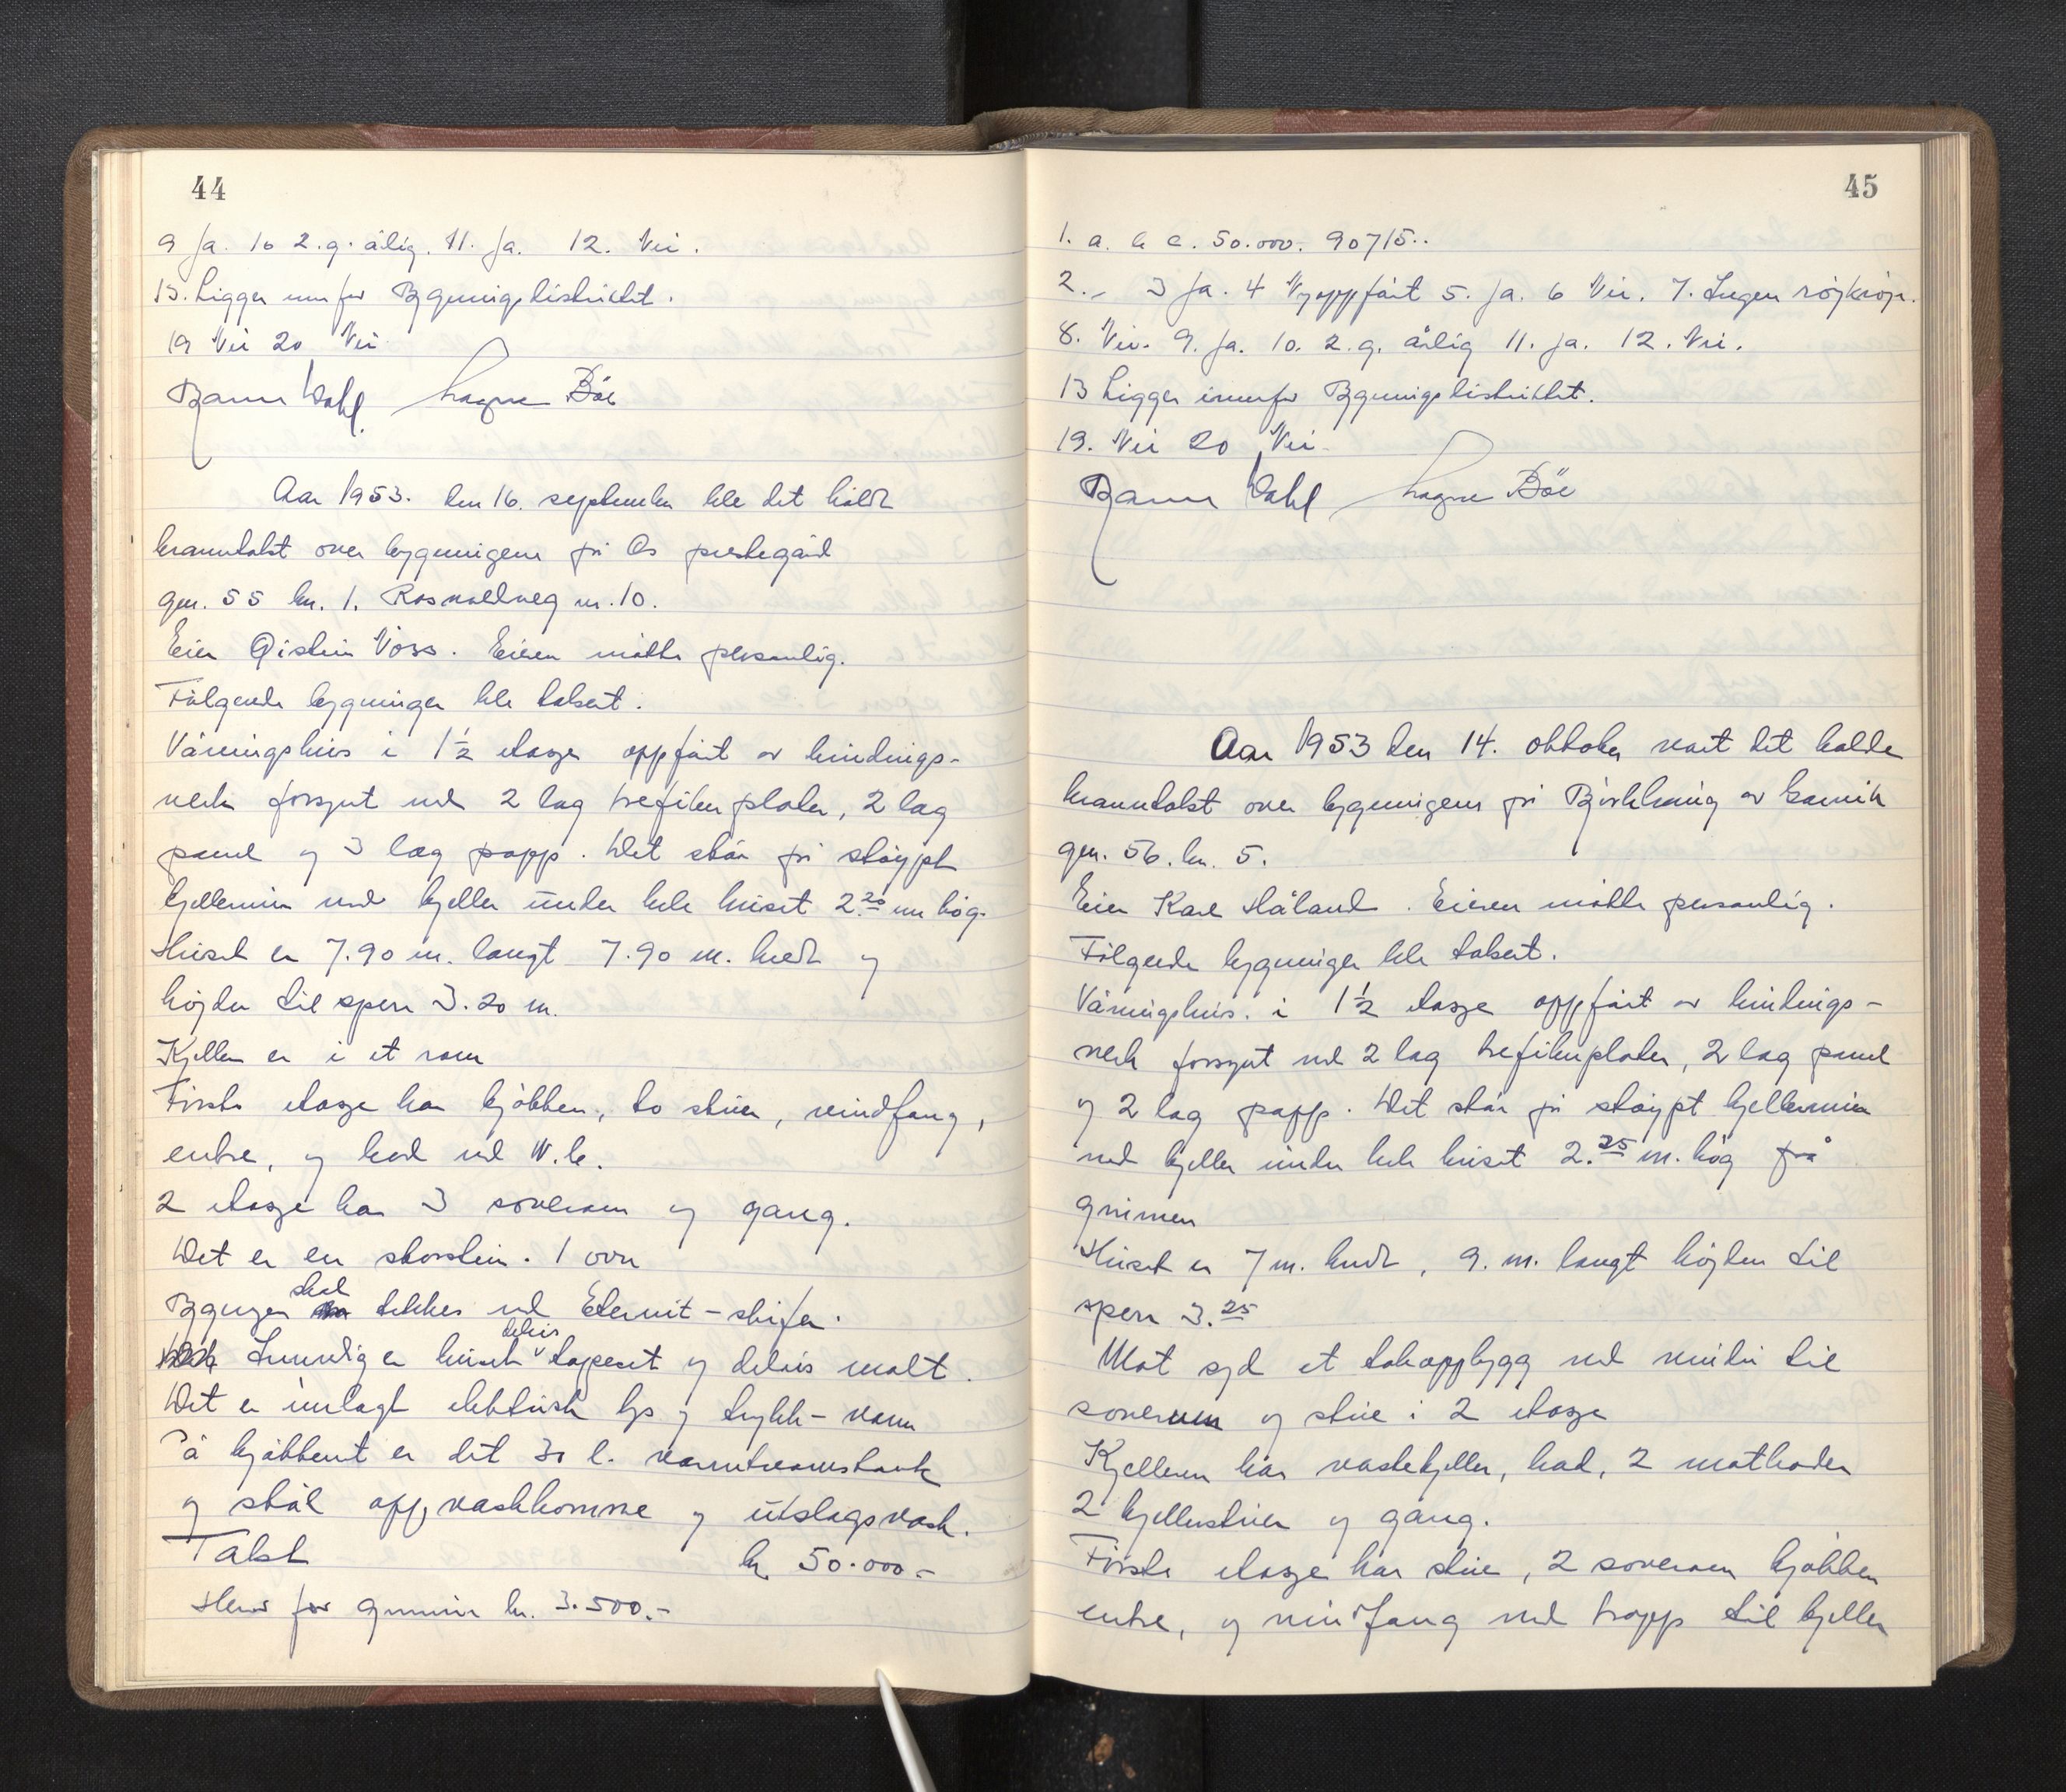 44
9 Ja. 10 2.g. årlig. 11. Ja. 12. Nei.
13. Ligger innfor Bygningsdistriktet.
19 Nei 20 Nei
Dahl Magne Böe
Aar 1953. den 16. september ble det holdt
branntakst over bygningene på Os prestegård
gnr. 55 bn. 1. veg nr. 10.
Eier Øistein Voss. Eieren møtte personlig.
Følgende bygninger ble taksert.
Våningshus i 1½ etasje oppført av bindings-
verk forsynt med 2 lag trefiberplater, 2 lag
panel og 3 lag papp. Det står på støypt
kjellermur med kjeller under hele huset 2.20 m høg.
Huset er 7.90 m. langt 7.90 m. bredt og
høgden til sperr 3.20 m.
Kjeller er i et rom
Første etasje har kjøkken, to stuer, vindfang,
entre, og bad med W.c.
2 etasje har 3 soverom og gang.
Det er en skorstein. 1 ovn
Bygningen skal tekkes med Eternit-skifer.
Innvendig er huset delvis tapesert og delvis malt.
Det er innlagt elektrisk lys og trykk-vann
På kjøkkenet er det 30 l. varmtvannstank
og stål oppvaskkomme og utslagsvask.
Takst kr 50.000.-
Herav for grunnmur kr. 3.500.-
45
1. a. b c. 50.000. 90715..
2.- 3 Ja. 4 Nyoppført 5. Ja. 6 Nei. 7. Ingen
8. Nei. 9. Ja. 10. 2.g. årlig 11. Ja. 12. Nei.
13 Ligger innenfor Bygningsdistriktet.
19. Nei 20 Nei
Dahl Magne Böe
Aar 1953 den 14. oktober vart det halde
branntakst over bygningene på av
gnr. 56. bn. 5.
Eier Karl Håland. Eieren møtte personlig.
Følgende bygninger ble taksert.
Våningshus. i 1½ etasje oppført av bindings-
verk forsynt med 2 lag trefiberplater, 2 lag panel
og 2 lag papp. Det står på støypt kjellermur
med kjeller under hele huset 2.25 m. høg frå
grunnen
Huset er 7 m. bredt, 9. m. langt høgden til
sperr 3.25
Mot syd et takoppbygg med vindu til
soverom og stue i 2 etasje
Kjelleren har vaskekjeller, bad, 2 matboder
2 kjellerstuer og gang.
Første etasje har stue, 2 soverom kjøkken
entre, og vindfang med trapp til kjeller